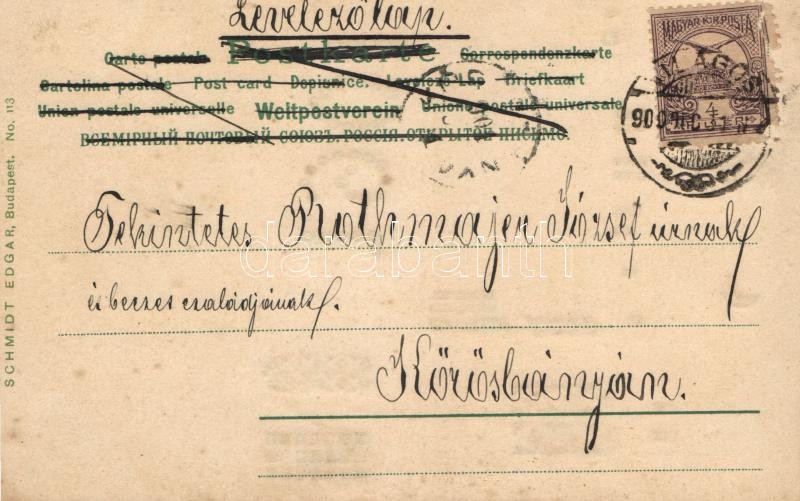 Levelezőlap.
Carte postale Postkarte Correspondenzkarte
Cartolina postale Post card Dopisnice. Levelező-Lap Briefkaart
Union postale universelle Weltpostverein Unione postale universale
ВСЕМІРНЫЙ ПОЧТОВЫЙ СОЮЗЪ. РОССІЯ. ОТКРЫТОЕ ПИСЬМО.
MAGYAR KIR. POSTA
4
Tekintetes Rothmajer József úrnak
és becses családjának.
Kőrösbányán.
SCHMIDT EDGAR, Budapest. No. 113
darabanth